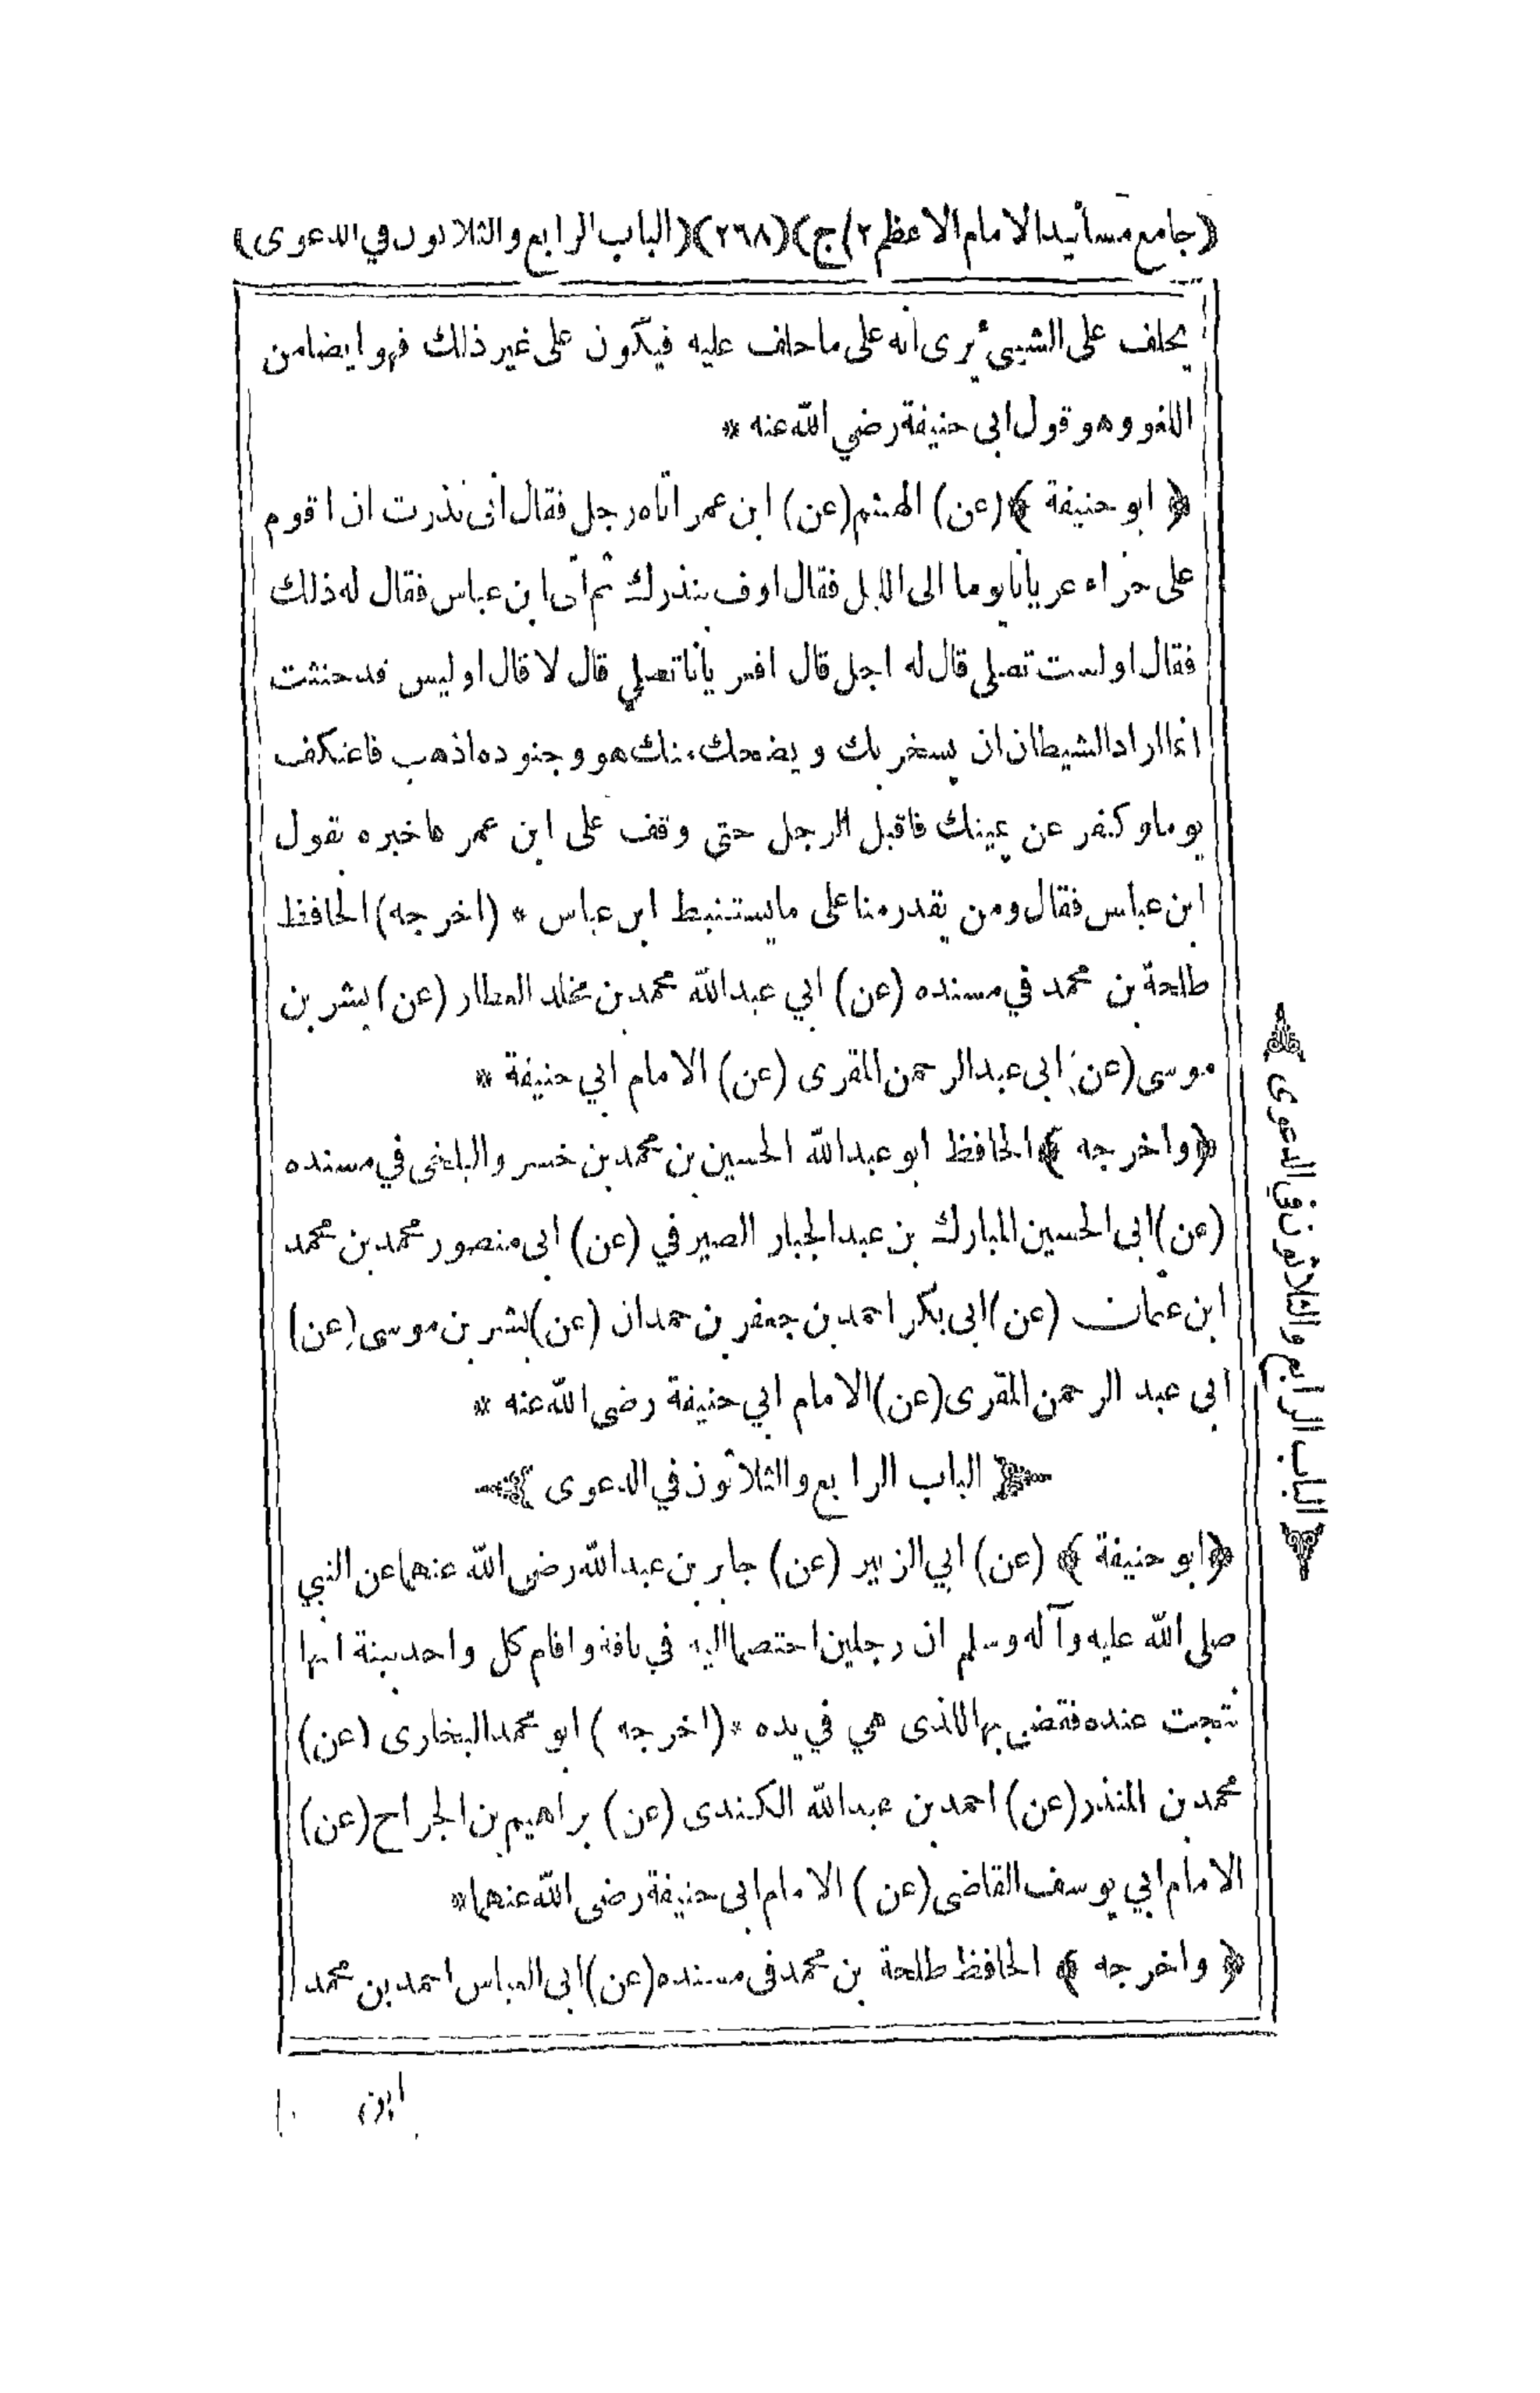 (جامع مسانيد الامام الاعظم ٢) ج) (٢٦٨) (الباب الرابع والثلاثون في الدعوى)
يحلف على الشيئ يرى انه على ما حلف عليه فيكون على غير ذلك فهو ايضا من
اللغو وهو قول ابى حنيفة رضي الله عنه *
﴿ ابو حنيفة ﴾ (عن) الهيثم (عن) ابن عمر اتاه رجل فقال انى نذرت ان اقوم
على حراء عريانا يوما الى الليل فقال اوف بنذرك ثم اتى ابن عباس فقال له ذلك
فقال او لست تصلى قال له اجل قال افعريانا تصلي قال لا قال او ليس قد حنثت
انما اراد الشيطان ان يسخر بك و يضحك منك هو و جنوده اذهب فاعتكف
يوما و كفر عن يمينك فاقبل الرجل حتى وقف على ابن عمر فاخبره بقول
ابن عباس فقال ومن يقدر منا على ما يستنبط ابن عباس * (اخرجه) الحافظ
طلحة بن محمد في مسنده (عن) ابي عبد الله محمد بن مخلد العطار (عن) بشر بن
موسى (عن) ابى عبد الرحمن المقرى (عن) الامام ابي حنيفة *
﴿واخرجه ﴾ الحافظ ابو عبد الله الحسين بن محمد بن خسرو البلخى في مسنده
(عن) ابى الحسين المبارك بن عبد الجبار الصيرفي (عن) ابى منصور محمد بن محمد
ابن عثمان (عن) ابى بكر احمد بن جعفر بن حمدان (عن) بشر بن موسى (عن)
ابى عبد الرحمن المقرى (عن) الامام ابي حنيفة رضى الله عنه *
الباب الرابع والثلاثون في الدعوى
﴿ابو حنيفة ﴾ (عن) ابي الزبير (عن) جابر بن عبد الله رضى الله عنهما عن النبي
صلى الله عليه وآله وسلم ان رجلين اختصما اليه في ناقة واقام كل واحد بينة انها
نتجت عنده فقضى بها للذى هي في يده * (اخرجه ) ابو محمد البخارى (عن)
محمد بن المنذر (عن) احمد بن عبد الله الكندى (عن) براهيم بن الجراح (عن)
الامام ابي يوسف القاضى (عن ) الامام ابى حنيفة رضى الله عنهما *
﴿ واخرجه ﴾ الحافظ طلحة بن محمد فى مسنده (عن) ابى العباس احمد بن محمد
ابن
الباب الرابع والثلاثون في الدعوى